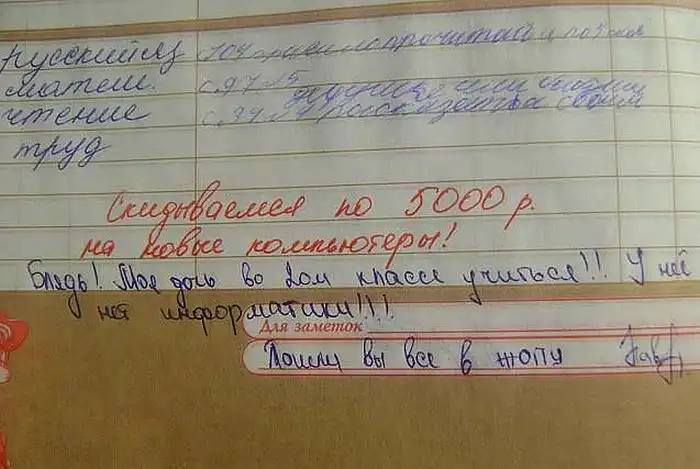 русский яз с.104 прочитай и
матем. с.97 №5
чтение с.94 рассказать о своём
труд
Скидываемся по 5000 р.
на новые компьютеры!
Блядь! Моя дочь во 2ом классе учиться!!! У неё
нет информатики!!!
Для заметок
Пошли вы все в жопу